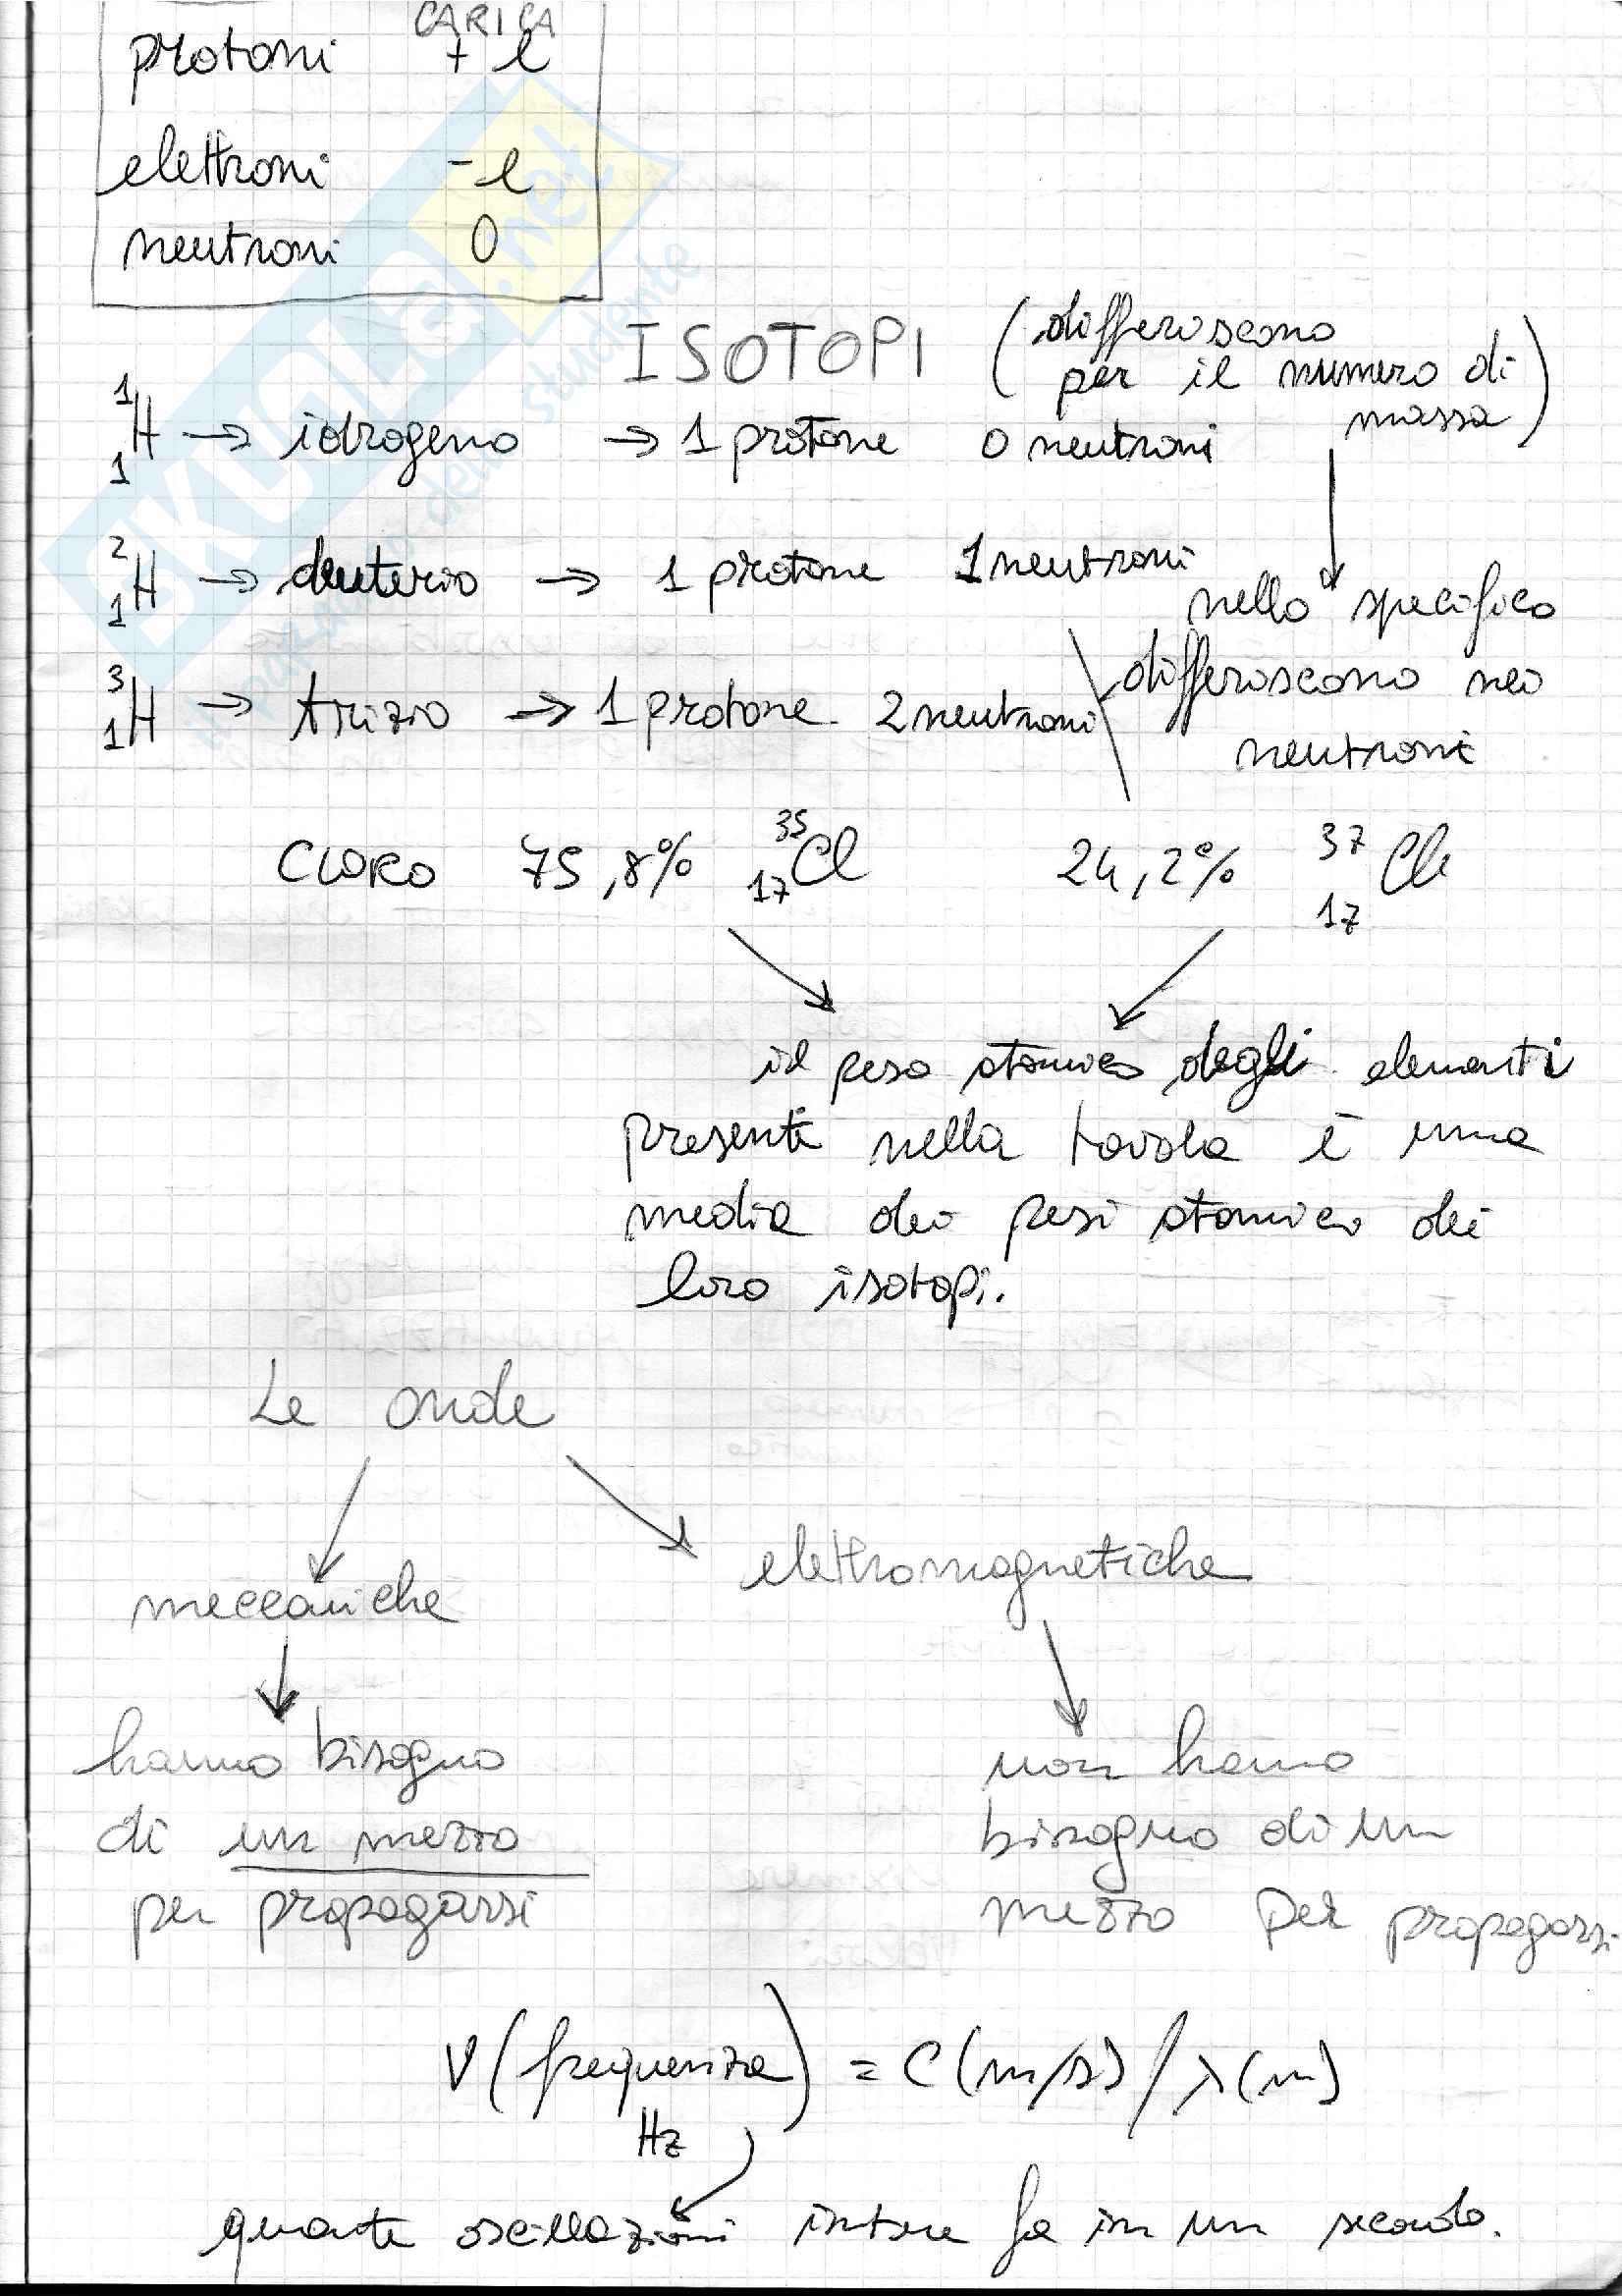 CARICA
protoni + e
elettroni -e
neutroni 0
ISOTOPI (differiscono
per il numero di
massa)
¹₁H → idrogeno → 1 protone 0 neutroni
²₁H → deuterio → 1 protone 1 neutroni
nello specifico
differiscono nei
neutroni
³₁H → trizio → 1 protone 2 neutroni
CLORO 75,8% ³⁵₁₇Cl 24,2% ³⁷₁₇Cl
il peso atomico degli elementi
presenti nella tavola è una
media dei pesi atomici dei
loro isotopi.
Le onde
meccaniche
elettromagnetiche
hanno bisogno
di un mezzo
per propagarsi
non hanno
bisogno di un
mezzo per propagarsi
ν(frequenza) = C(m/s)/λ(m)
Hz
quante oscillazioni intere fa in un secondo.
SKUOLA.net
dello studente